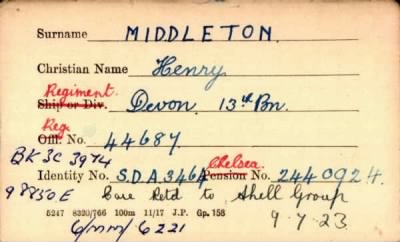 Surname MIDDLETON.
Christian Name Henry
Regiment.
Ship or Div. Devon. 13th Bn.
Reg.
Offl. No. 44687
BK3C 3974 Chelsea
Identity No. S.D.A. 3464 Pension No. 2440924.
98850E Case Retd to Shell Group
5247 8320/766 100m 11/17 J.P. Gp. 158 9.7.23.
6/MM/6221